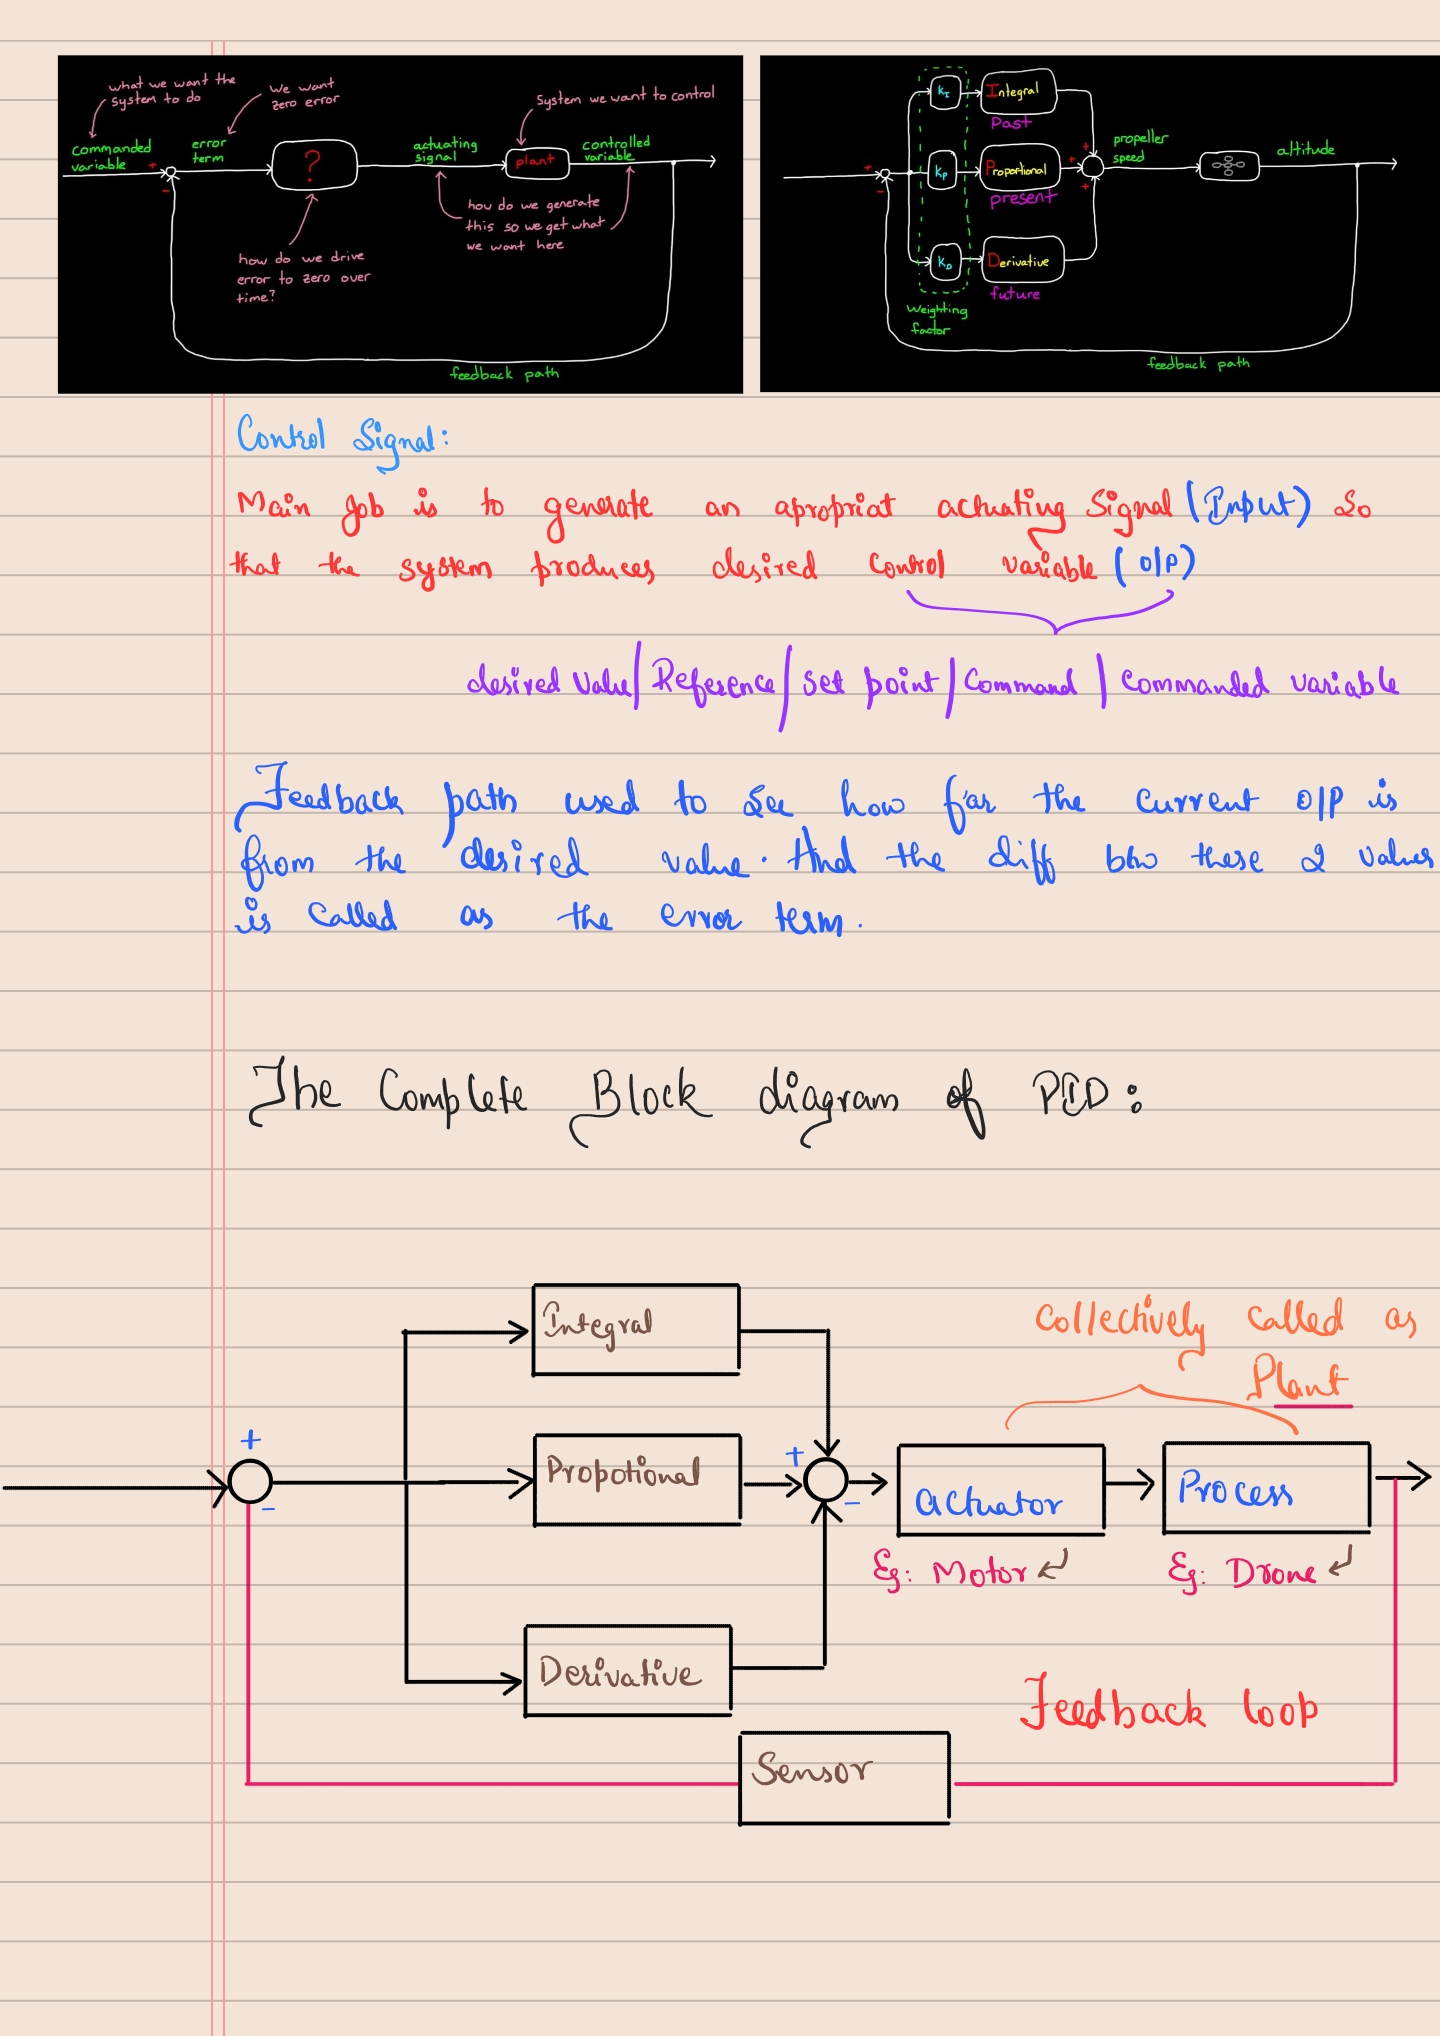 what we want the
system to do
We want
zero error
System we want to control
commanded
variable
error
term
actuating
signal
controlled
variable
+
-
?
plant
how do we generate
this so we get what
we want here
how do we drive
error to zero over
time?
feedback path
KI
Integral
Past
propeller
speed
altitude
+
-
KP
Proportional
present
+
+
+
KD
Derivative
future
Weighting
factor
feedback path
Control Signal:
Main Job is to generate an apropriat actuating Signal (Input) So
that the system produces desired Control variable (O/P)
desired Value/Reference/set point/Command/Commanded variable
Feedback path used to see how far the current O/P is
from the desired value. And the diff btw these 2 values
is called as the error term.
The Complete Block diagram of PID:
Integral
Collectively called as
Plant
+
-
Propotional
+
-
Actuator
Process
Eg: Motor
Eg: Drone
Derivative
Feedback loop
Sensor